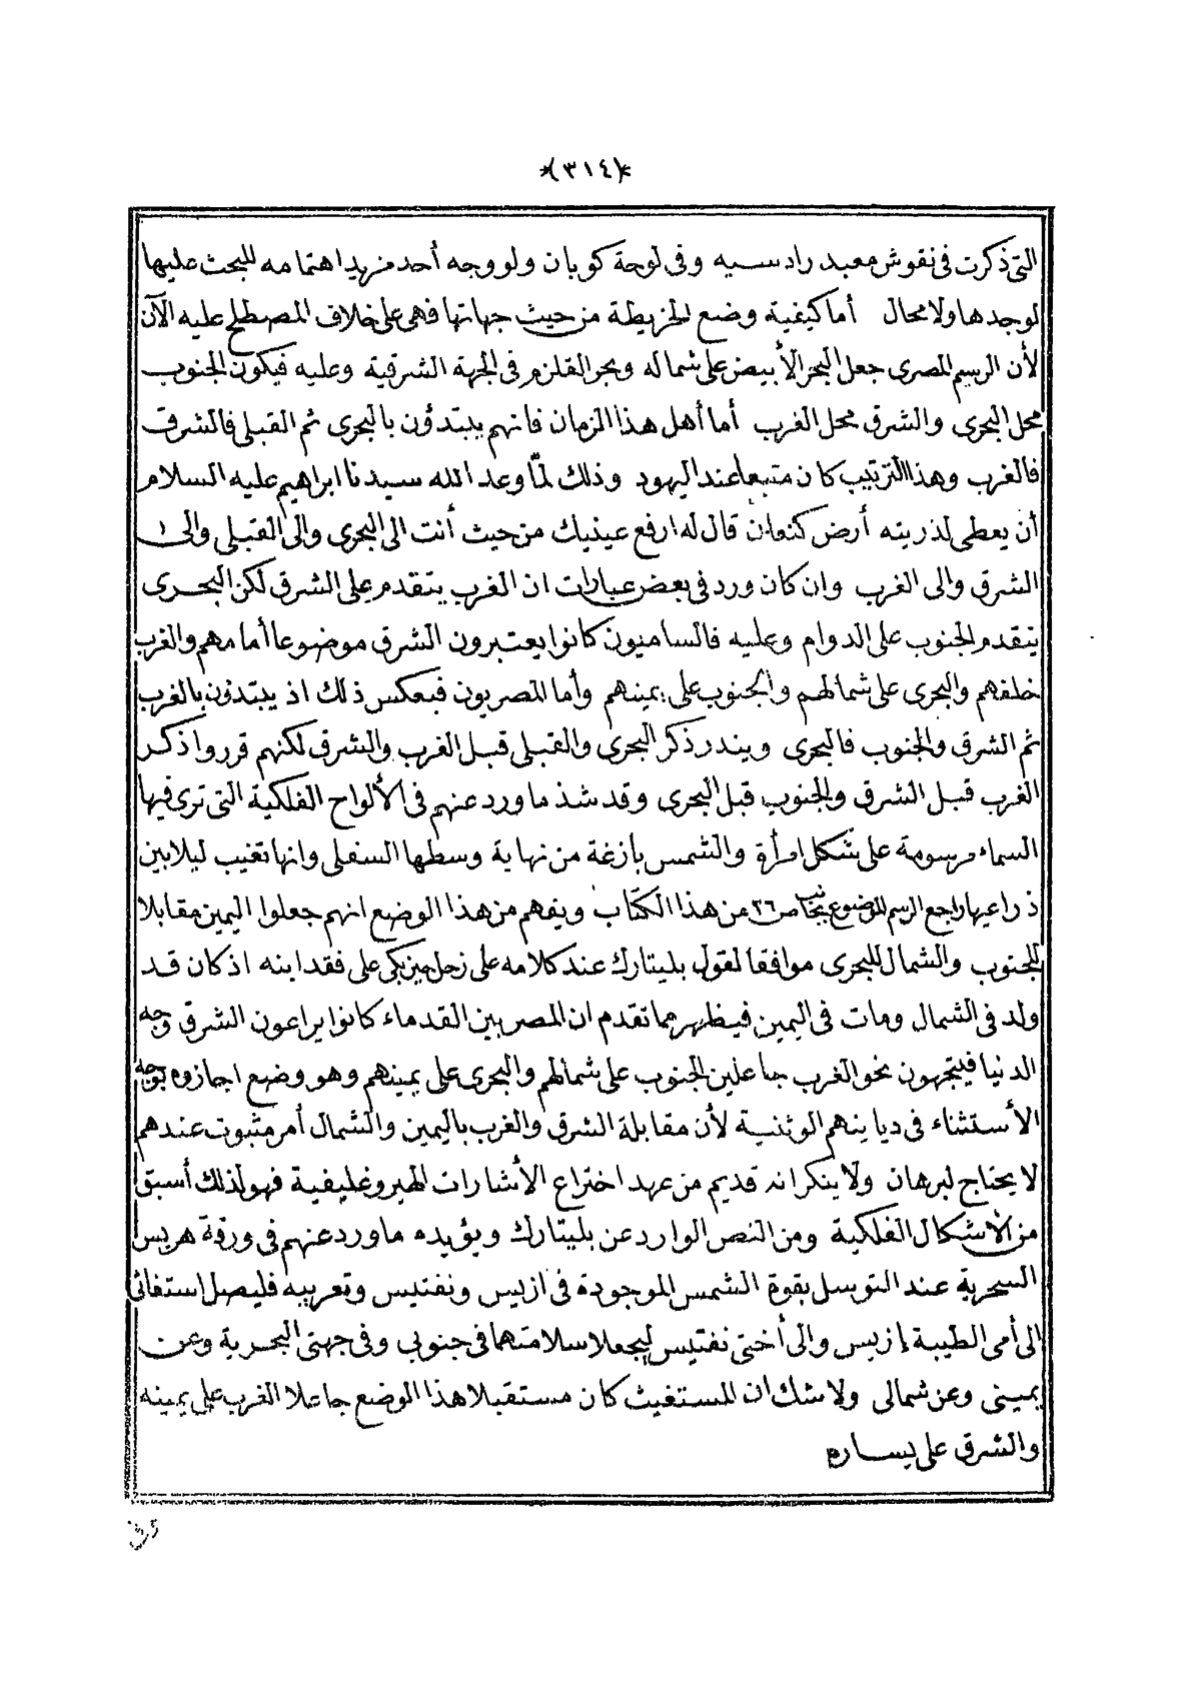 *(٣١٤)*
التى ذكرت فى نقوش معبد رادسيه وفى لوحة كوبان ولو وجه أحد مزيد اهتمامه للبحث عليها
لوجدها ولا محال أما كيفية وضع الخريطة من حيث جهاتها فهى على خلاف المصطلح عليه الآن
لأن الرسم المصرى جعل البحر الأبيض على شماله وبحر القلزم فى الجهة الشرقية وعليه فيكون الجنوب
محل البحرى والشرق محل الغرب أما أهل هذا الزمان فانهم يبتدؤن بالبحرى ثم القبلى فالشرق
فالغرب وهذا الترتيب كان متبعا عند اليهود وذلك لمّا وعد الله سيدنا ابراهيم عليه السلام
أن يعطى لذريته أرض كنعان قال له ارفع عينيك من حيث أنت الى البحرى والى القبلى والى
الشرق والى الغرب وان كان ورد فى بعض عبارات ان الغرب يتقدم على الشرق لكن البحرى
يتقدم الجنوب على الدوام وعليه فالساميون كانوا يعتبرون الشرق موضوعا أمامهم والغرب
خلفهم والبحرى على شمالهم والجنوب على يمينهم وأما المصريون فبعكس ذلك اذ يبتدؤن بالغرب
ثم الشرق والجنوب فالبحرى ويندر ذكر البحرى والقبلى قبل الغرب والشرق لكنهم قرروا ذكر
الغرب قبل الشرق والجنوب قبل البحرى وقد شذ ما ورد عنهم فى الألواح الفلكية التى ترى فيها
السماء مرسومة على شكل امرأة والشمس بازغة من نهاية وسطها السفلى وانها تغيب ليلا بين
ذراعيها راجع الرسم الموضوع بجانب ص ٢٦ من هذا الكتاب ويفهم من هذا الوضع انهم جعلوا اليمين مقابلا
للجنوب والشمال للبحرى موافقا لقول بليتارك عند كلامه على زحل حين بكى على فقد ابنه اذ كان قد
ولد فى الشمال ومات فى اليمين فيظهر مما تقدم ان المصريين القدماء كانوا يراعون الشرق وجه
الدنيا فيتجهون نحو الغرب جاعلين الجنوب على شمالهم والبحرى على يمينهم وهو وضع اجازوه بوجه
الأستثناء فى ديانتهم الوثنية لأن مقابلة الشرق والغرب باليمين والشمال أمر مثبوت عندهم
لا يحتاج لبرهان ولا ينكر انه قديم من عهد اختراع الأشارات الهيروغليفية فهو لذلك أسبق
من الأشكال الفلكية ومن النص الوارد عن بليتارك ويؤيده ما ورد عنهم فى ورقة هريس
السحرية عند التوسل بقوة الشمس الموجودة فى ازيس ونفتيس وتعريبه فليصل استغاثى
الى أمى الطيبة إزيس والى أختى نفتيس ليجعلا سلامتهما فى جنوبى وفى جهتى البحرية وعن
يمينى وعن شمالى ولا شك ان المستغيث كان مستقبلا هذا الوضع جاعلا الغرب على يمينه
والشرق على يساره